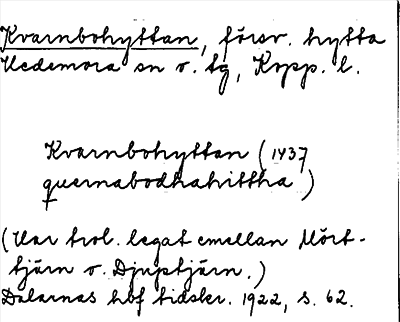 Kvarnbohyttan, försv. hytta
Hedemora sn o. tg, Kopp. l.
Kvarnbohyttan (1437
quernabodhahittha)
(Har trol. legat emellan Mört-
tjärn o. Djuptjärn.)
Dalarnas hbf tidskr. 1922, s. 62.